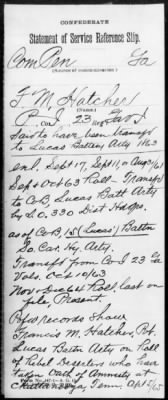 CONFEDERATE
Statement of Service Reference Slip.
Com Pen Ga
F. M. Hatcher
(Name.)
P Co I 23 Ga I
Said to have been transf'd
to Lucas Battery Arty 1863
enl. Sept 17, Sept 1
Sept & Oct 63 Roll. Transf'd
to Co B, Lucas Batt Arty
by S.O. 330 Dist Hdqs.
as of Co B 15 (Lucas') Battn
So. Car. Hy. Arty.
Transf'd from Co I 23 Ga
Vols. Oct 10/63
Nov & Dec 64 Roll last on
file, Present.
P of W records show
Francis M. Hatcher, Pvt.
Lucas Battn Arty on Roll
of Rebel Deserters who have
taken Oath of Amnesty at
Chattanooga, Tenn. Apl 5/65